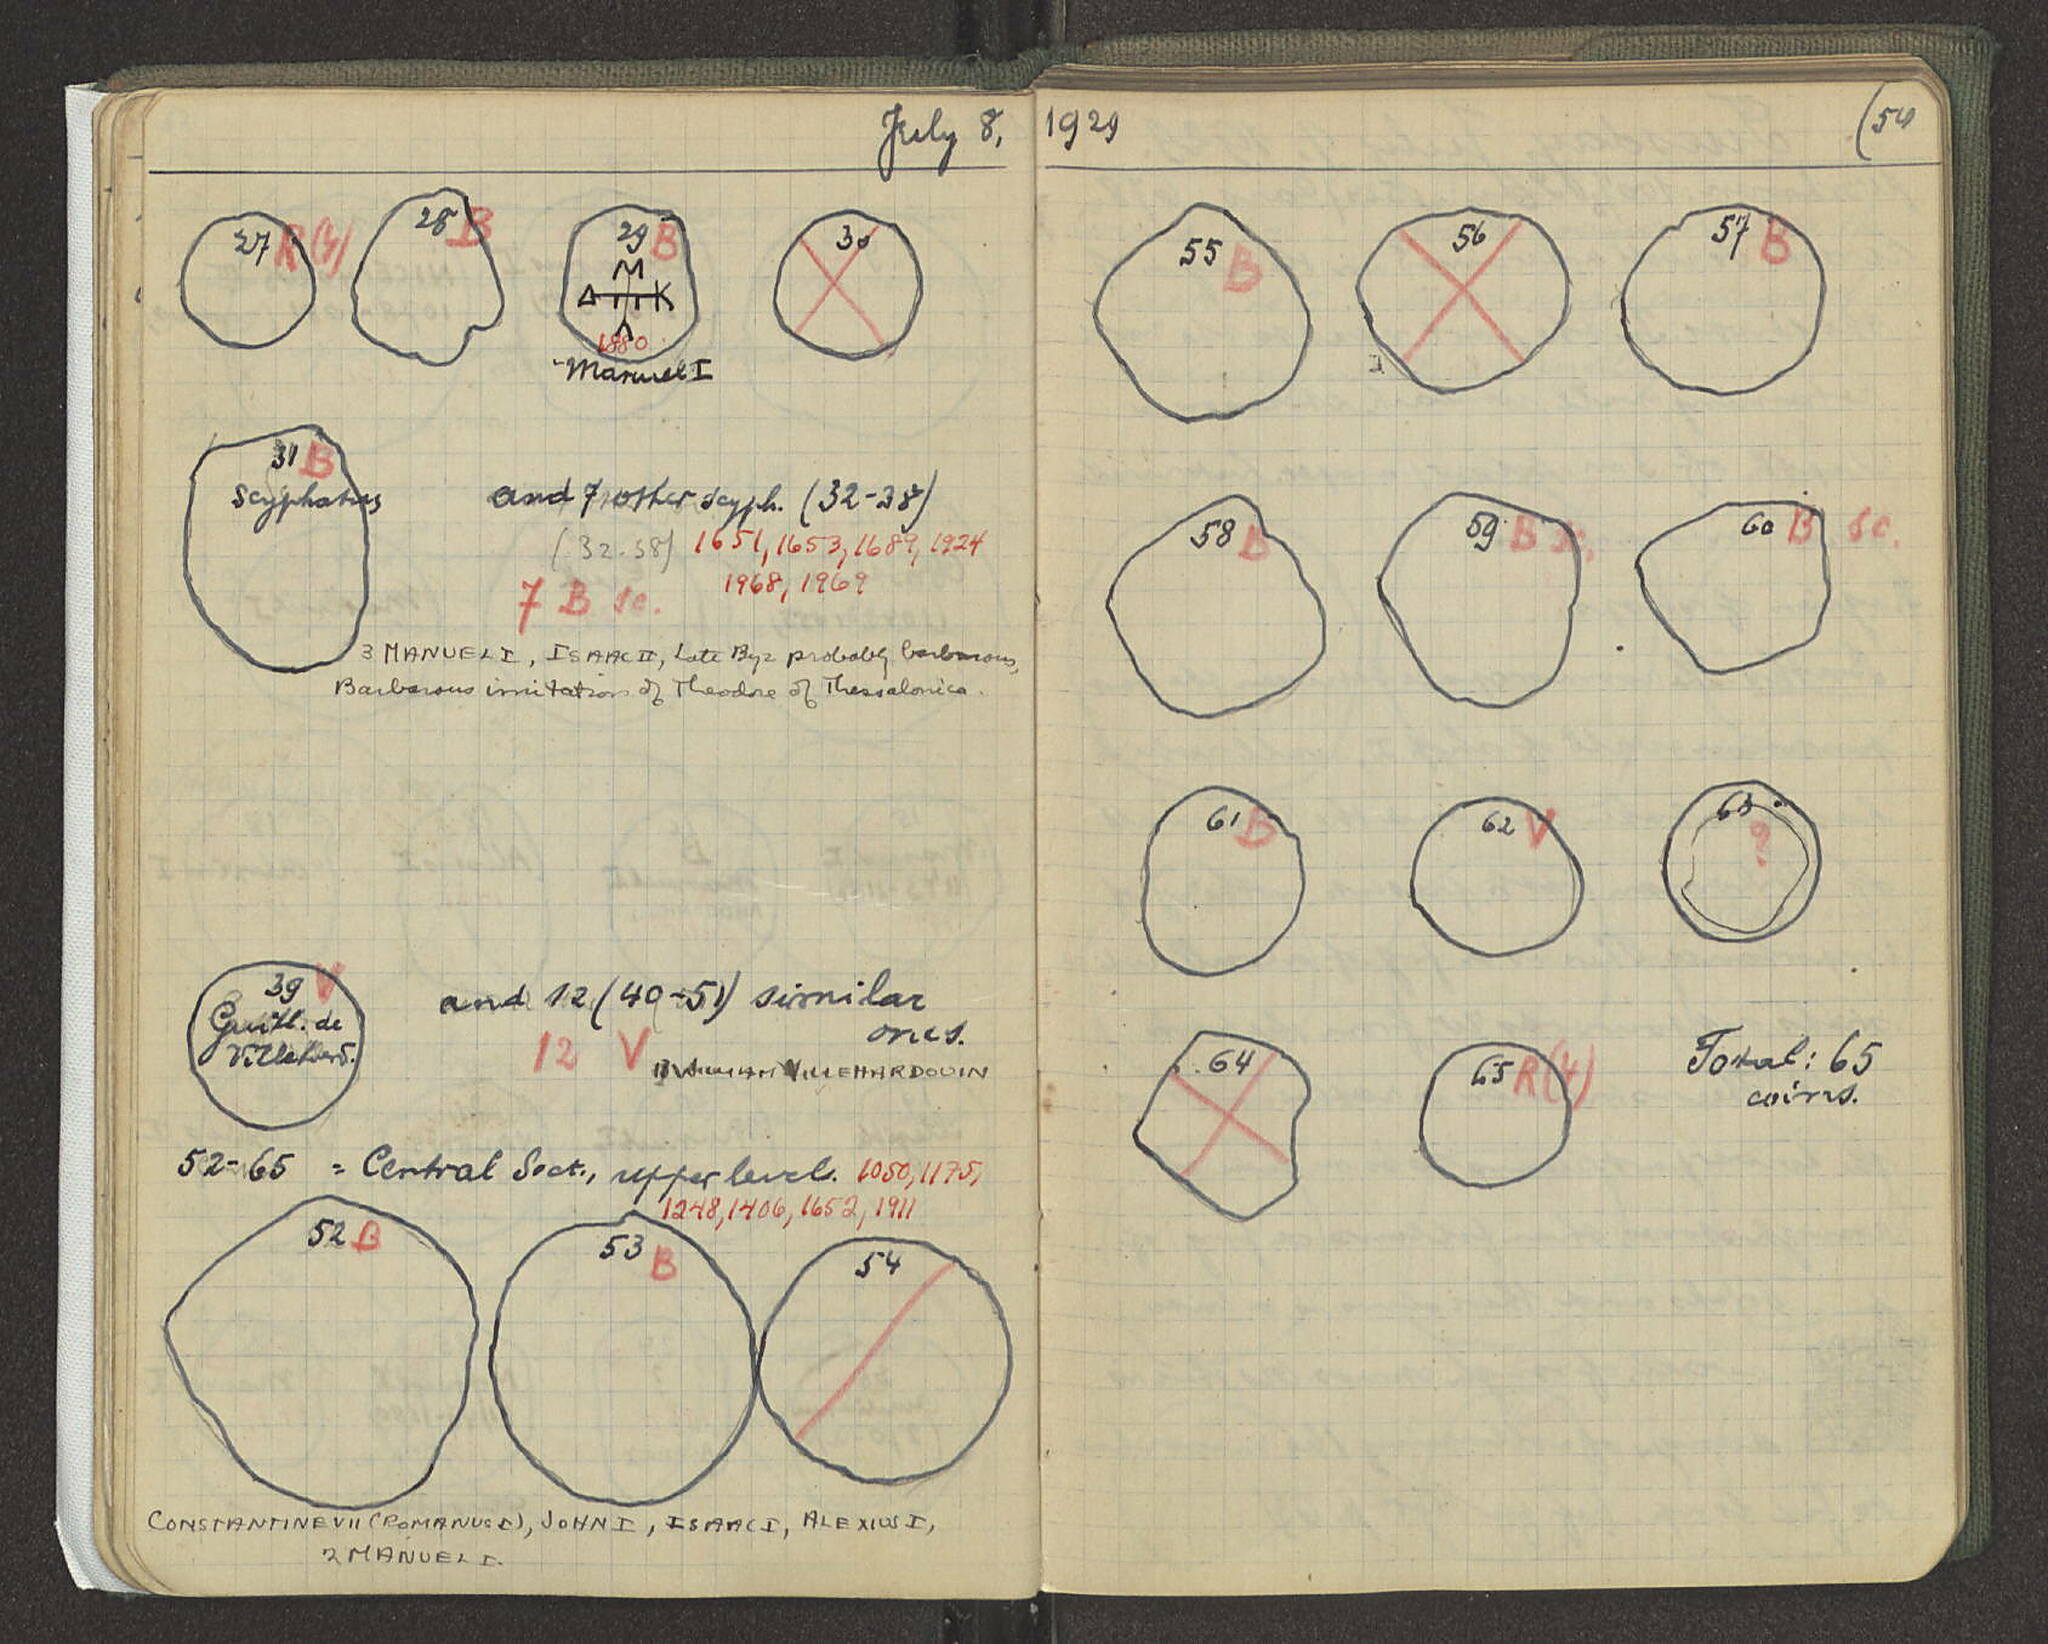 July 8, 1929
(54
27 R(4)
28 B
29 B
M
Δ Π K
Λ
1880
Manuel I
30
31 B
Scyphatus
and 7 other scyph. (32-38)
(32-38) 1651, 1653, 1689, 1924
1968, 1969
7 B sc.
3 MANUEL I, ISAAC II, Late Byz probably barbarous,
Barbarous imitation of Theodore of Thessalonica.
39 V
Guill. de
Villehard.
and 12 (40-51) similar
ones.
12 V
WILLIAM VILLEHARDOUIN
52-65 = Central Sect., upper level. 1050, 1175,
1248, 1406, 1652, 1911
52 B
53 B
54
CONSTANTINE VII (ROMANUS I), JOHN I, ISAAC I, ALEXIUS I,
2 MANUEL I.
55 B
56
57 B
58 B
59 B Sc.
60 B Sc.
61 B
62 V
63
?
64
65 R(4)
Total: 65
coins.